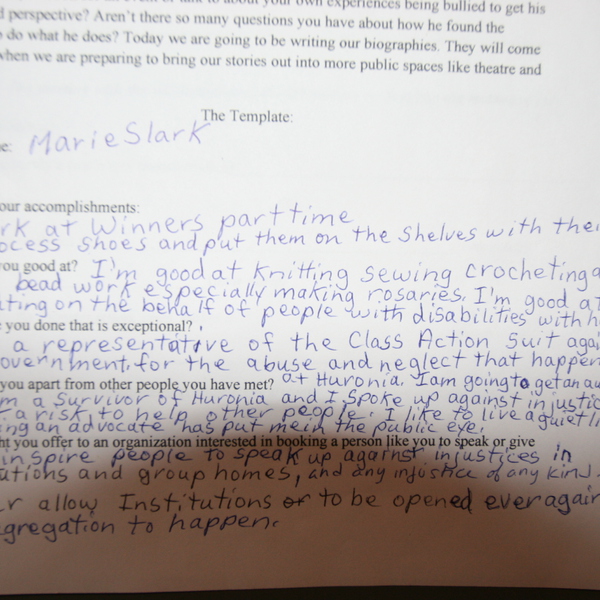 about your own experiences being bullied to get his
perspective? Aren't there so many questions you have about how he found the
do what he does? Today we are going to be writing our biographies. They will come
when we are preparing to bring our stories out into more public spaces like theatre and
The Template:
e: Marie Slark
our accomplishments:
rk at Winners part time
ocess shoes and put them on the shelves with thei
you good at? I'm good at knitting sewing crocheting a
bead work especially making rosaries. I'm good at
ating on the behalf of people with disabilities with h
e you done that is exceptional?
a representative of the Class Action Suit agai
overnment, for the abuse and neglect that happen
you apart from other people you have met? at Huronia. I am going to get an au
m a survivor of Huronia and I spoke up against injustic
a risk, to help other people. I like to live a quiet li
ing an advocate has put me in the public eye.
ht you offer to an organization interested in booking a person like you to speak or give
inspire people to speak up against injustices in
utions and group homes, and any injustice of any kind.
r allow Institutions to be opened ever again
gregation to happen.